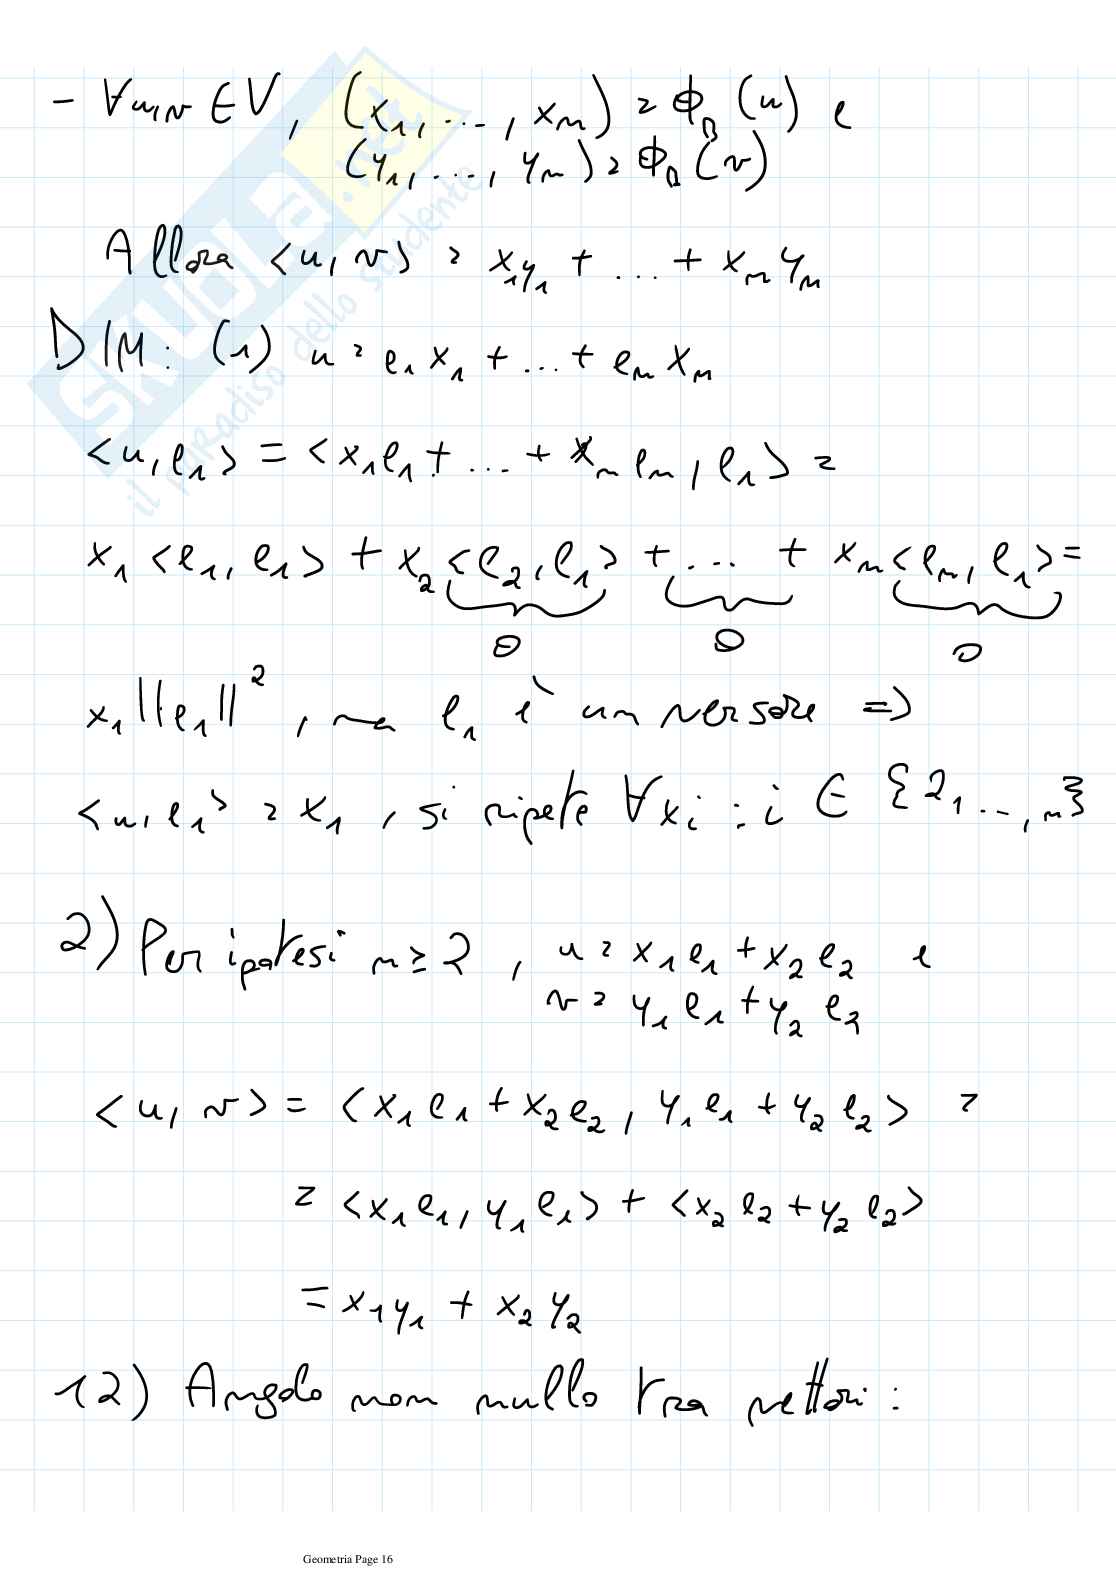 - ∀u,v ∈ V, (x₁, ..., xₙ) = Φ_B (u) e
(y₁, ..., yₙ) = Φ_B (v)
Allora <u, v> = x₁y₁ + ... + xₙyₙ
DIM: (1) u = e₁x₁ + ... + eₙxₙ
<u, e₁> = <x₁e₁ + ... + xₙeₙ, e₁> =
x₁<e₁, e₁> + x₂<e₂, e₁> + ... + xₙ<eₙ, e₁> =
0 0 0
x₁||e₁||², ma e₁ è un versore =>
<u, e₁> = x₁, si ripete ∀xᵢ : i ∈ {2, ..., n}
2) Per ipotesi n ≥ 2, u = x₁e₁ + x₂e₂ e
v = y₁e₁ + y₂e₂
<u, v> = <x₁e₁ + x₂e₂, y₁e₁ + y₂e₂> =
= <x₁e₁, y₁e₁> + <x₂e₂ + y₂e₂>
= x₁y₁ + x₂y₂
12) Angolo non nullo tra vettori:
Geometria Page 16
SKUOLA.net
il paradiso dello studente